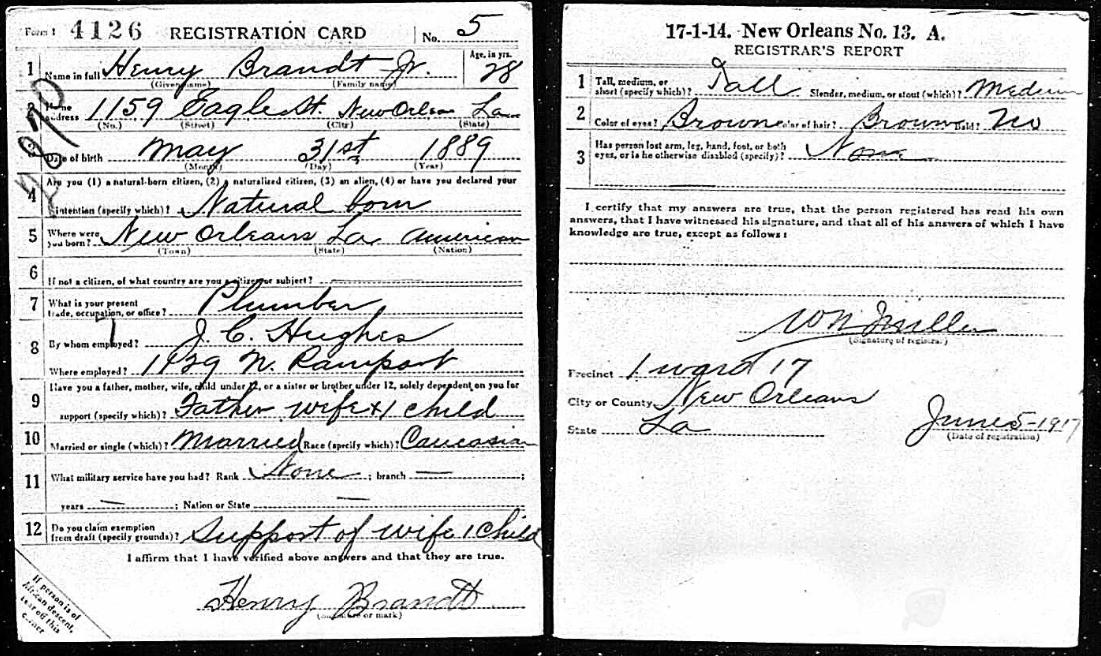 Form 1 4126 REGISTRATION CARD No. 5
1 Name in full Henry Brandt Jr. Age, in yrs. 28
(Given name) (Family name)
2 Home address 1159 Eagle St. New Orleans La
(No.) (Street) (City) (State)
3 Date of birth May 31st 1889
(Month) (Day) (Year)
4 Are you (1) a natural-born citizen, (2) a naturalized citizen, (3) an alien, (4) or have you declared your
intention (specify which)? Natural born
5 Where were you born? New Orleans La American
(Town) (State) (Nation)
6 If not a citizen, of what country are you a citizen or subject?
7 What is your present trade, occupation, or office? Plumber
8 By whom employed? J. C. Hughes
Where employed? N. Rampart
9 Have you a father, mother, wife, child under 12, or a sister or brother under 12, solely dependent on you for
support (specify which)? Father wife & 1 child
10 Married or single (which)? Married Race (specify which)? Caucasian
11 What military service have you had? Rank None ; branch — ;
years — ; Nation or State —
12 Do you claim exemption from draft (specify grounds)? Support of wife 1 child
I affirm that I have verified above answers and that they are true.
Henry Brandt
(Signature or mark)
If person is of
African descent,
tear off this
corner
17-1-14. New Orleans No. 13. A.
REGISTRAR'S REPORT
1 Tall, medium, or short (specify which)? Tall Slender, medium, or stout (which)? Medium
2 Color of eyes? Brown Color of hair? Brown Bald? No
3 Has person lost arm, leg, hand, foot, or both
eyes, or is he otherwise disabled (specify)? None
I certify that my answers are true, that the person registered has read his own
answers, that I have witnessed his signature, and that all of his answers of which I have
knowledge are true, except as follows:
W N Miller
(Signature of registrar)
Precinct 1 ward 17
City or County New Orleans
State La June 5-1917
(Date of registration)